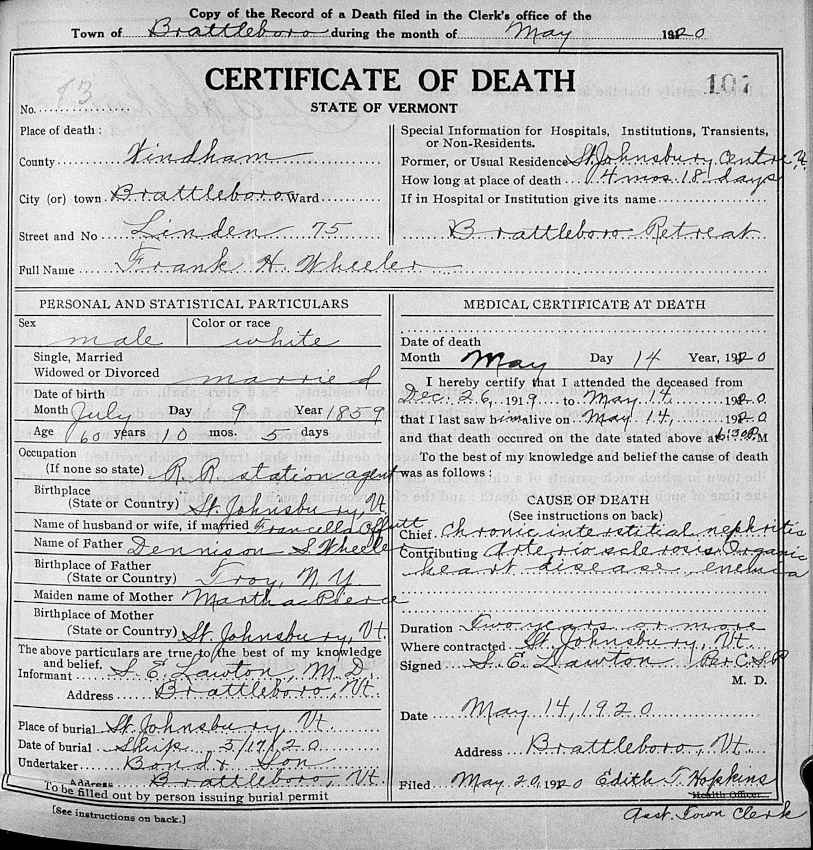 Copy of the Record of a Death filed in the Clerk's office of the
Town of Brattleboro during the month of May 1920
CERTIFICATE OF DEATH
107
No. 73
STATE OF VERMONT
Place of death:
County Windham
City (or) town Brattleboro Ward
Street and No Linden 75
Full Name Frank H. Wheeler
Special Information for Hospitals, Institutions, Transients,
or Non-Residents.
Former, or Usual Residence St. Johnsbury Centre, Vt.
How long at place of death 4 mos 18 days
If in Hospital or Institution give its name
Brattleboro Retreat
PERSONAL AND STATISTICAL PARTICULARS
Sex male
Color or race white
Single, Married
Widowed or Divorced married
Date of birth
Month July Day 9 Year 1859
Age 60 years 10 mos. 5 days
Occupation
(If none so state) R. R. station agent
Birthplace
(State or Country) St. Johnsbury, Vt.
Name of husband or wife, if married Francella
Name of Father Dennison S Wheeler
Birthplace of Father
(State or Country) Troy, N Y
Maiden name of Mother Martha Pierce
Birthplace of Mother
(State or Country) St. Johnsbury, Vt.
The above particulars are true to the best of my knowledge
and belief.
Informant S. E. Lawton, M.D.
Address Brattleboro, Vt.
Place of burial St. Johnsbury, Vt.
Date of burial Ship. 5/17/20
Undertaker Bond & Son
Address Brattleboro, Vt.
To be filled out by person issuing burial permit
[See instructions on back.]
MEDICAL CERTIFICATE AT DEATH
Date of death
Month May Day 14 Year, 1920
I hereby certify that I attended the deceased from
Dec. 26, 1919 to May 14, 1920
that I last saw him alive on May 14, 1920
and that death occured on the date stated above at 6:30 P. M
To the best of my knowledge and belief the cause of death
was as follows:
CAUSE OF DEATH
(See instructions on back)
Chief. Chronic interstitial nephritis
Contributing Arterio sclerosis, Organic
heart disease,
Duration Two years or more
Where contracted St. Johnsbury, Vt.
Signed S. E. Lawton Per C.S.P.
M. D.
Date May 14, 1920
Address Brattleboro, Vt.
Filed May 20, 1920 Edith T. Hopkins
Health Officer
Asst. Town Clerk